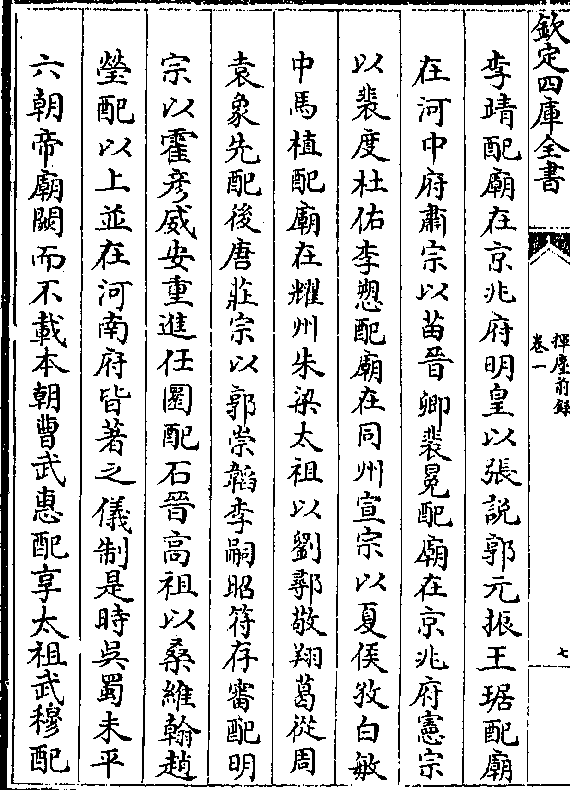 欽定四庫全書
揮麈前録
卷一
七
李靖配廟在京兆府明皇以張說郭元振王琚配廟
在河中府肅宗以苗晉卿裴冕配廟在京兆府憲宗
以裴度杜佑李愬配廟在同州宣宗以夏侯孜白敏
中馬植配廟在耀州朱梁太祖以劉鄩敬翔葛從周
袁象先配後唐莊宗以郭崇韜李嗣昭符存審配明
宗以霍彦威安重進任圜配石晉高祖以桑維翰趙
瑩配以上並在河南府皆著之儀制是時吳蜀未平
六朝帝廟闕而不載本朝曹武惠配享太祖武穆配